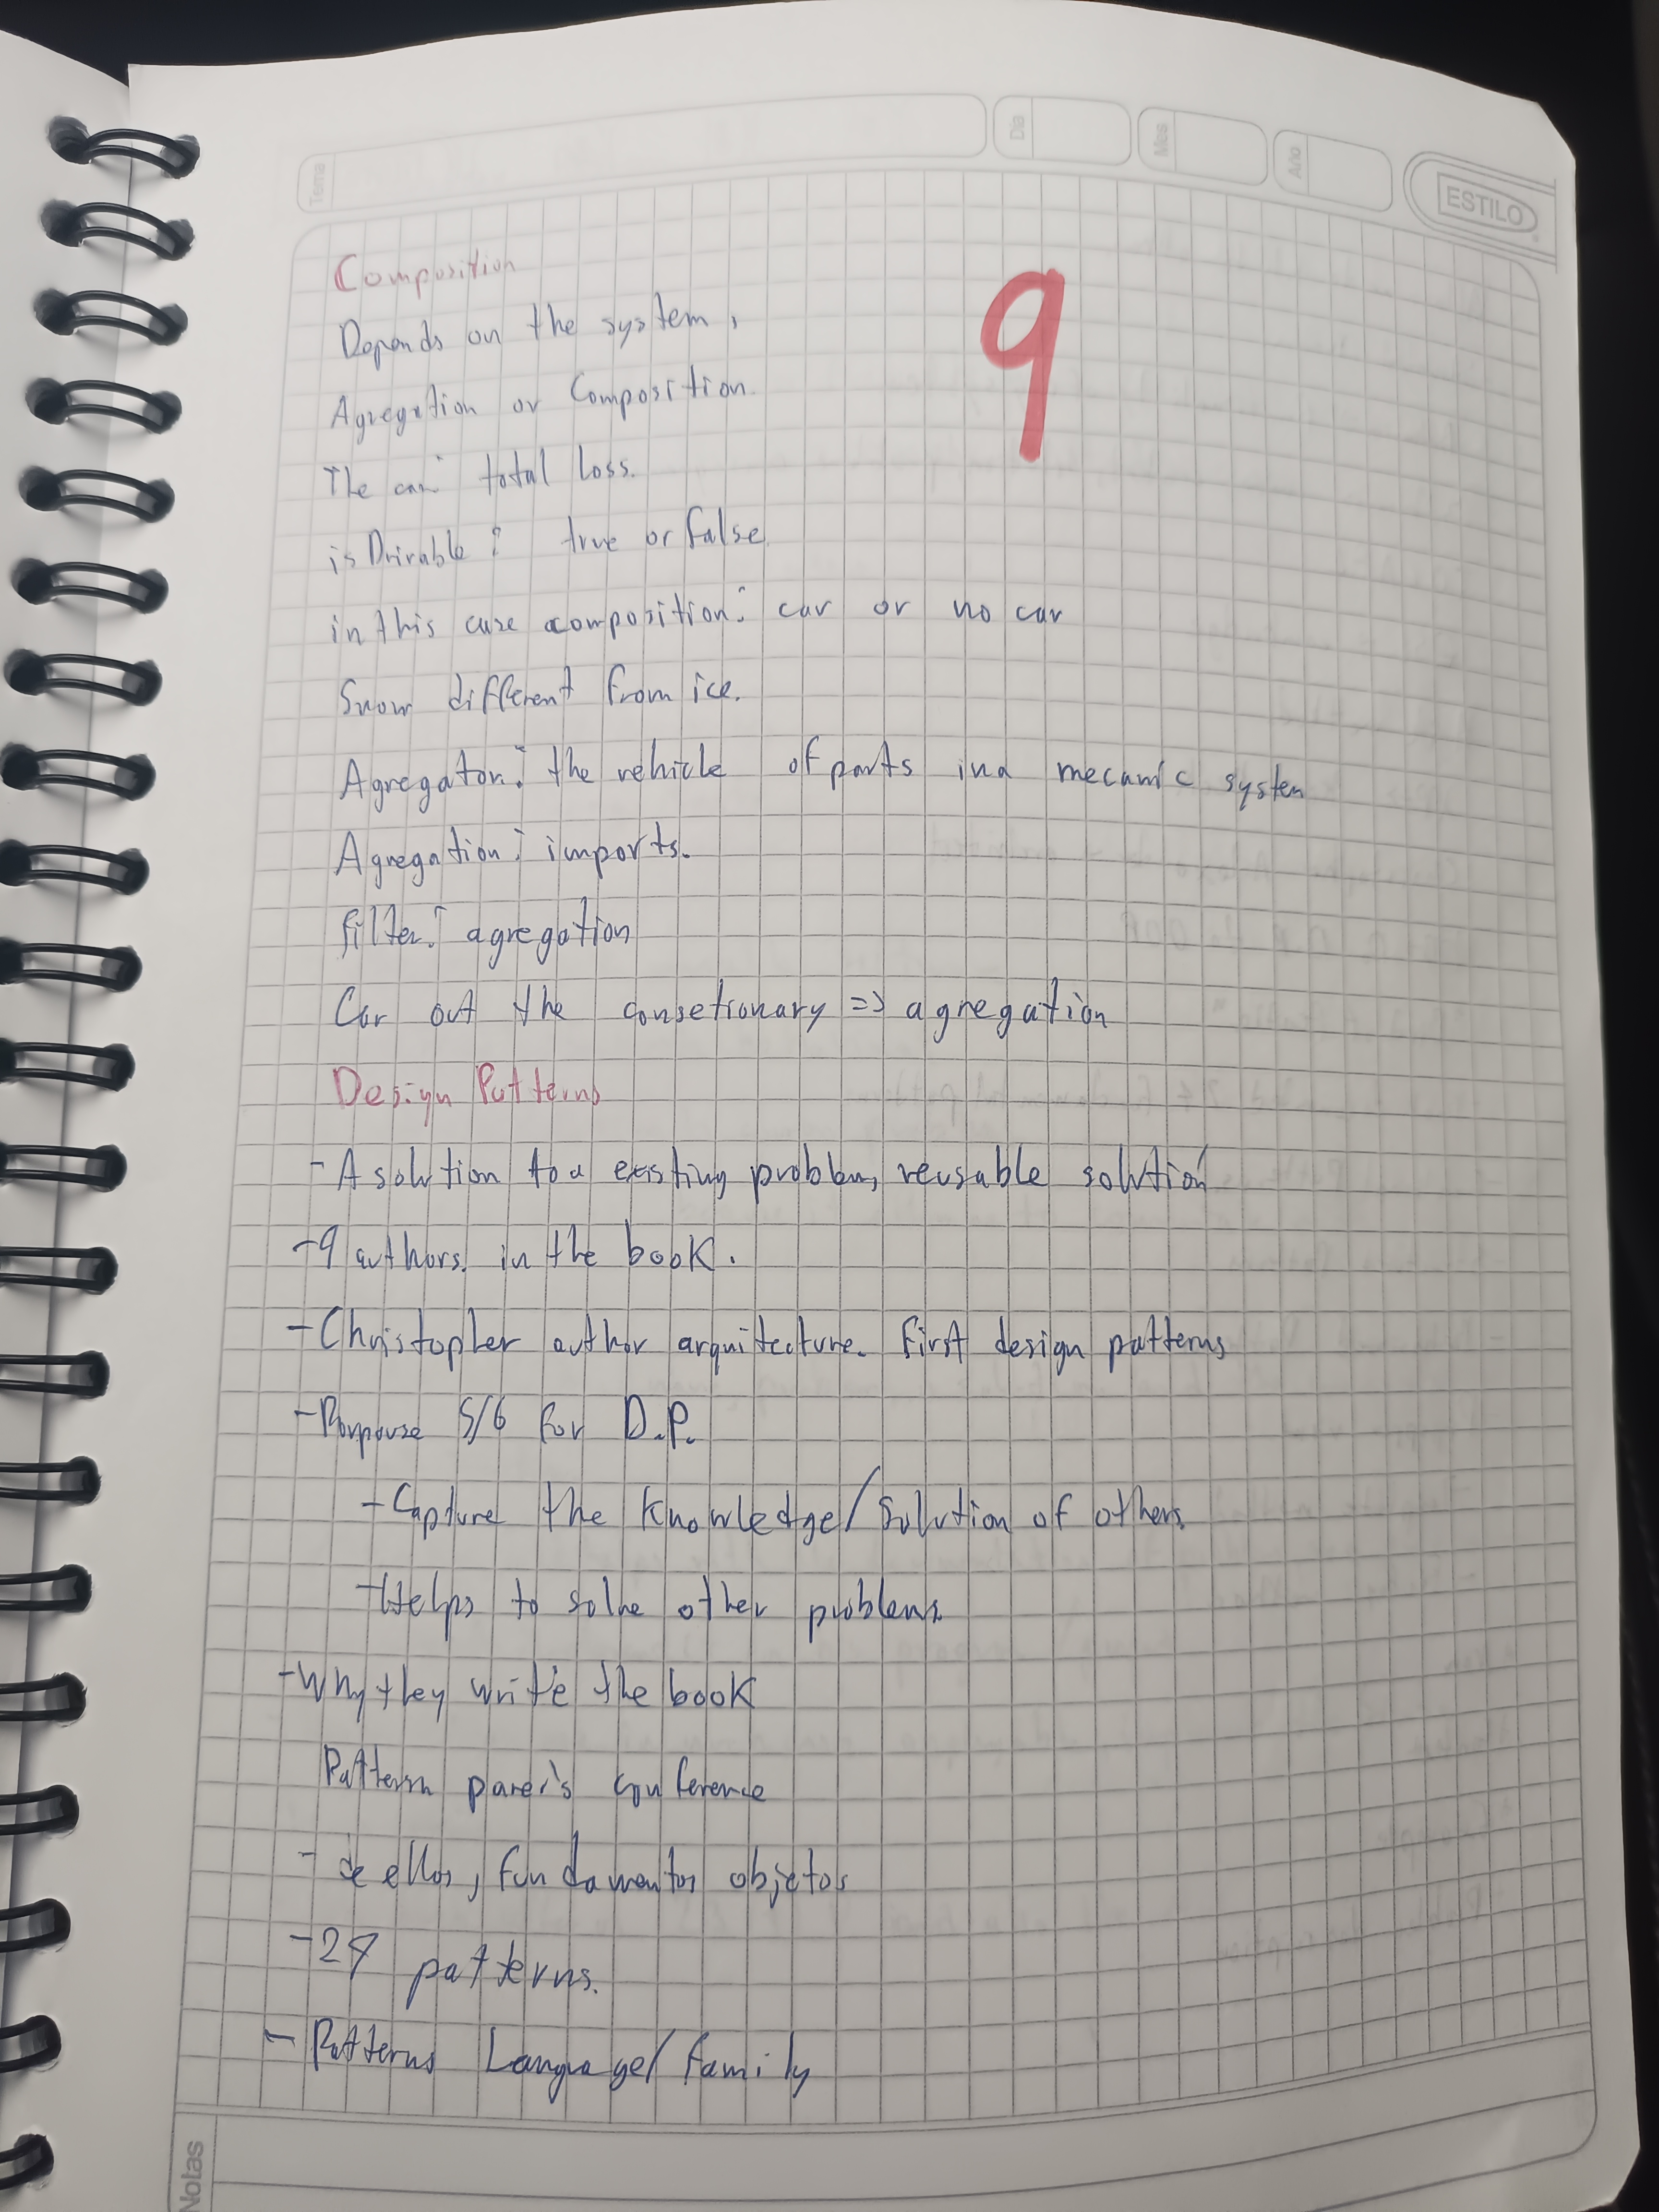 Tema
Dia
Mes
Año
ESTILO
9
Composition
Depends on the system,
Agregation or Composition.
The car: total loss.
isDrivable: true or false.
in this case composition: car or no car
Snow different from ice.
Agregator: the vehicle of parts in a mecanic system
Agregation: imports.
filter: agregation
Car out the consetionary => agregation
Design Patterns
- A solution to a existing problem, reusable solution
- 9 authors in the book.
- Christopher author arquitecture. First design patterns
- Porpouse 5/6 for D.P.
- Capture the Knowledge/Solution of others.
- Helps to solve other problems
- Why they write the book
Pattern conference
- de ellos, fundamentos objetos
- 24 patterns.
- Patterns Language/family
Notas